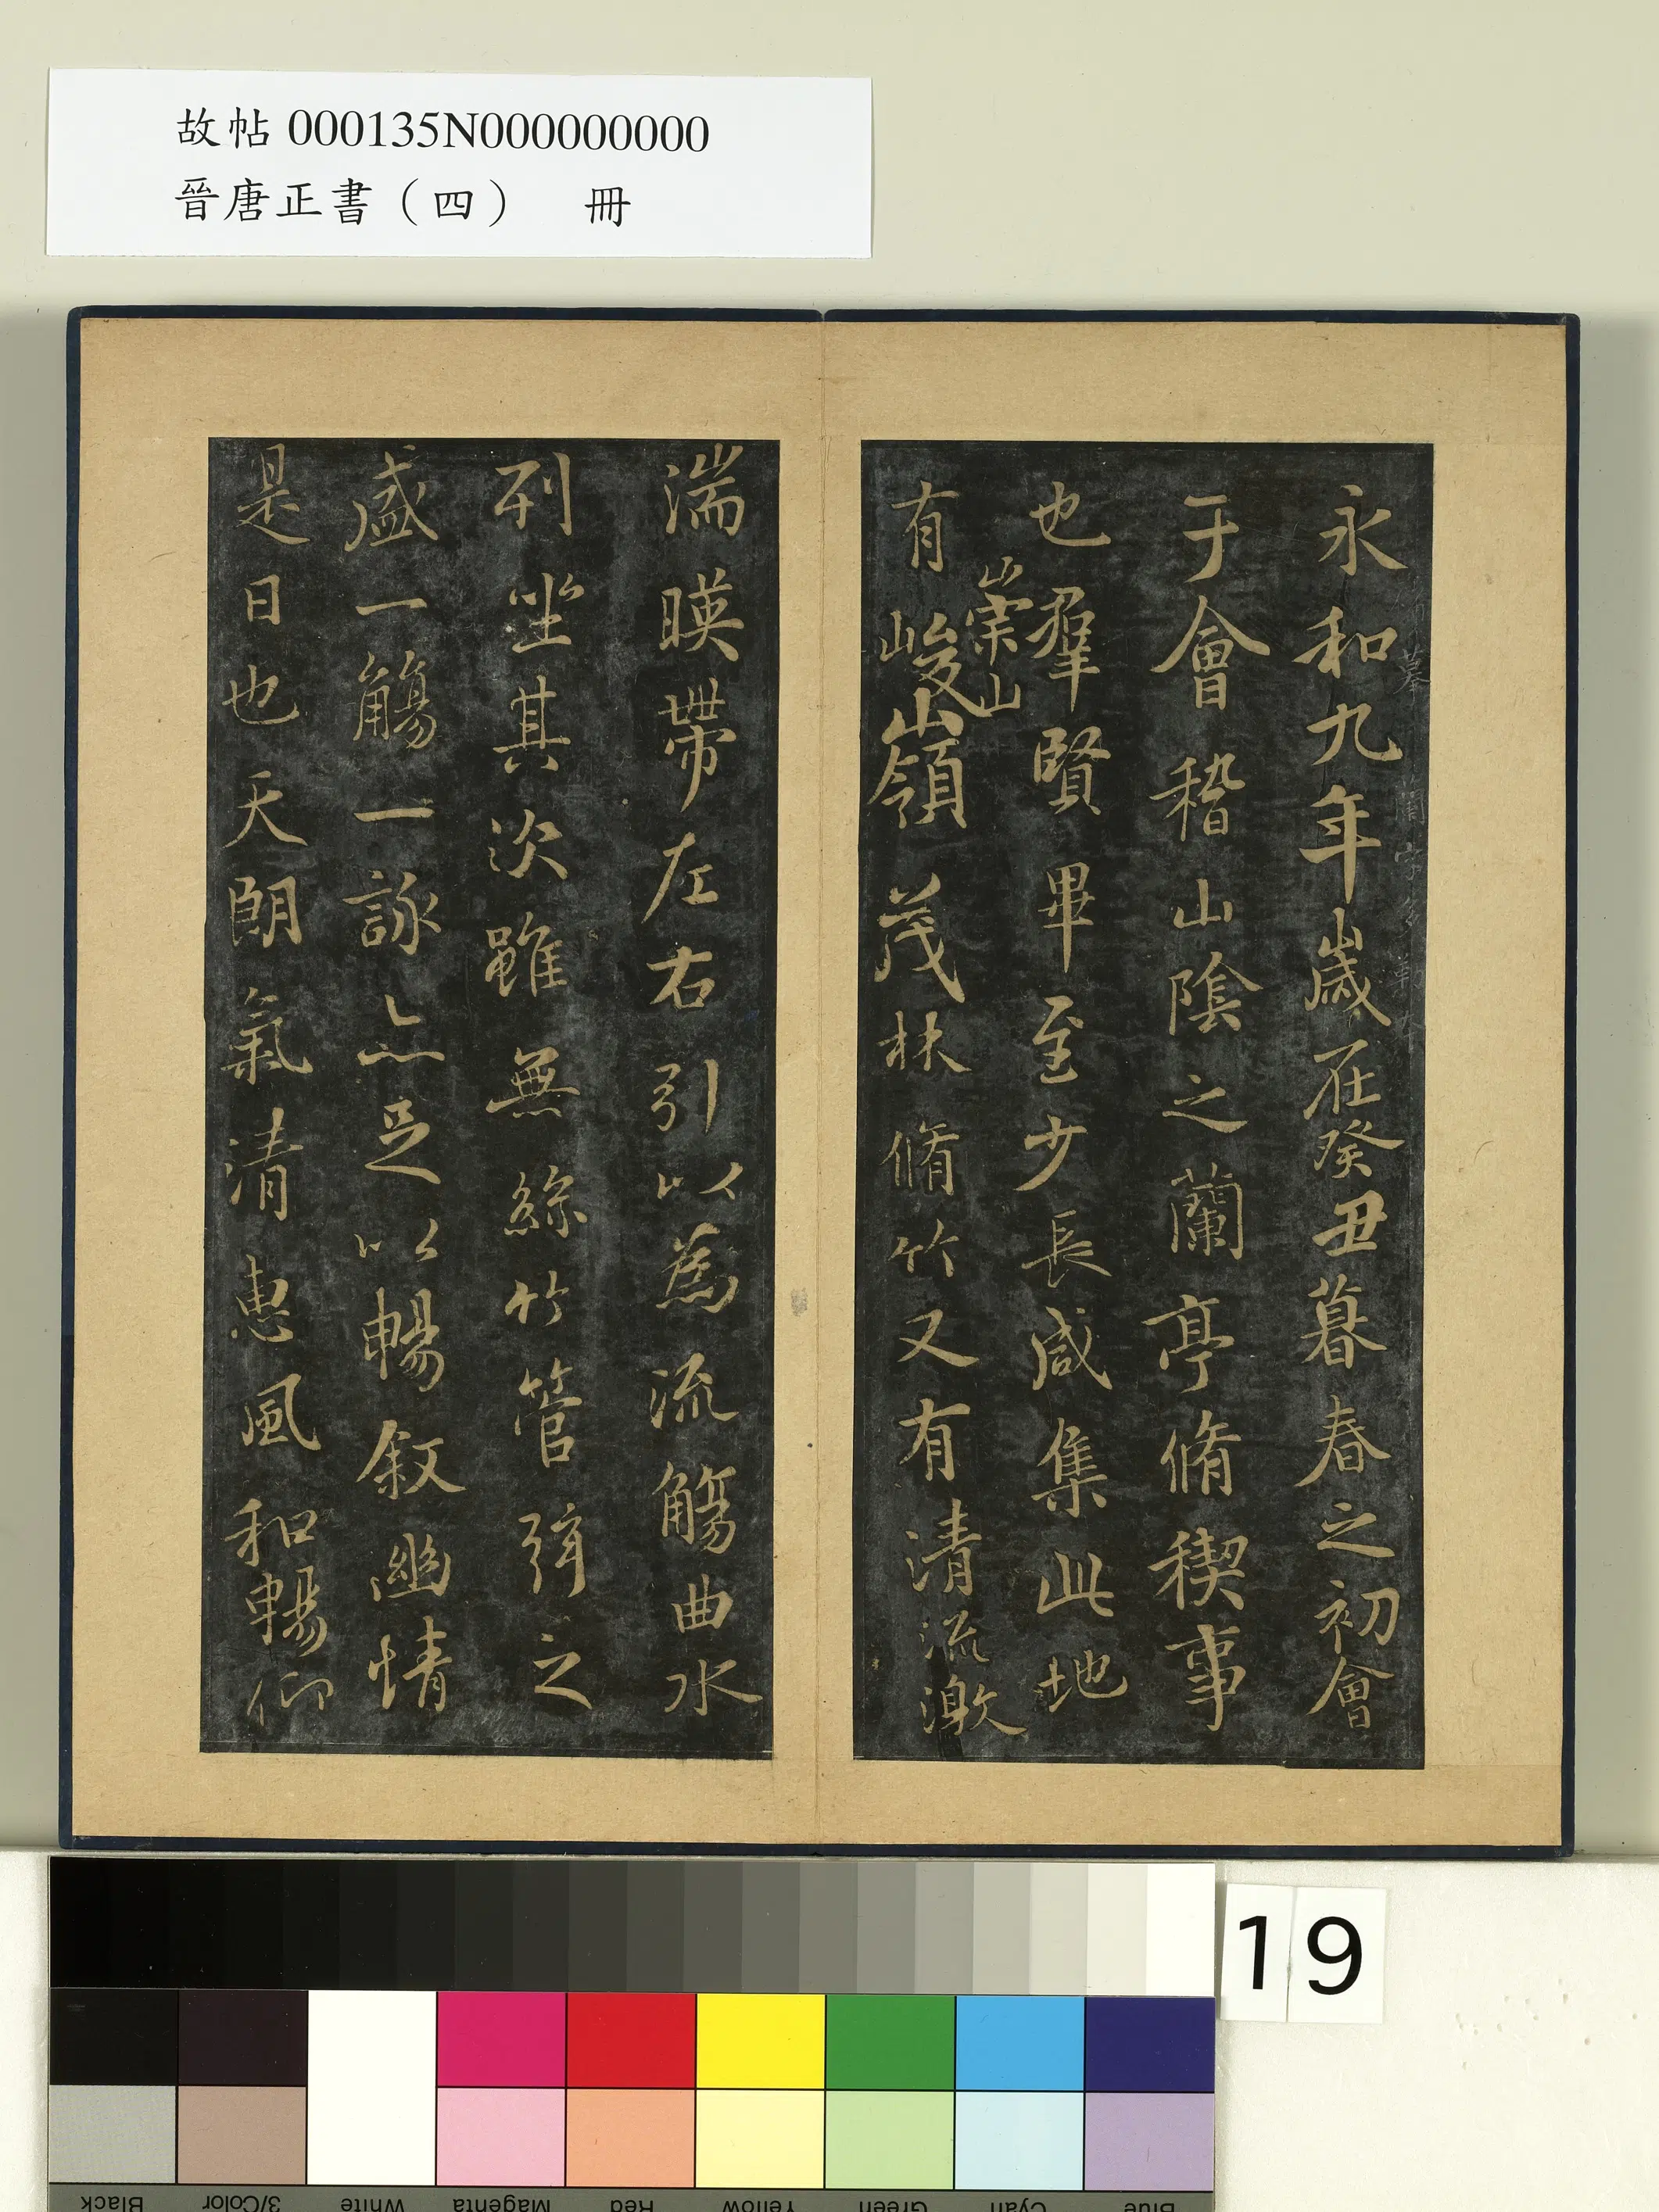 故帖 000135N000000000
晉唐正書（四） 冊
永和九年歲在癸丑暮春之初會
于會稽山陰之蘭亭脩稧事
也羣賢畢至少長咸集此地
有崇山峻嶺茂林脩竹又有清流激
湍暎帶左右引以為流觴曲水
列坐其次雖無絲竹管弦之
盛一觴一詠亦足以暢叙幽情
是日也天朗氣清惠風和暢仰
19
Black 3/Color White Magenta Red Yellow Green Cyan Blue